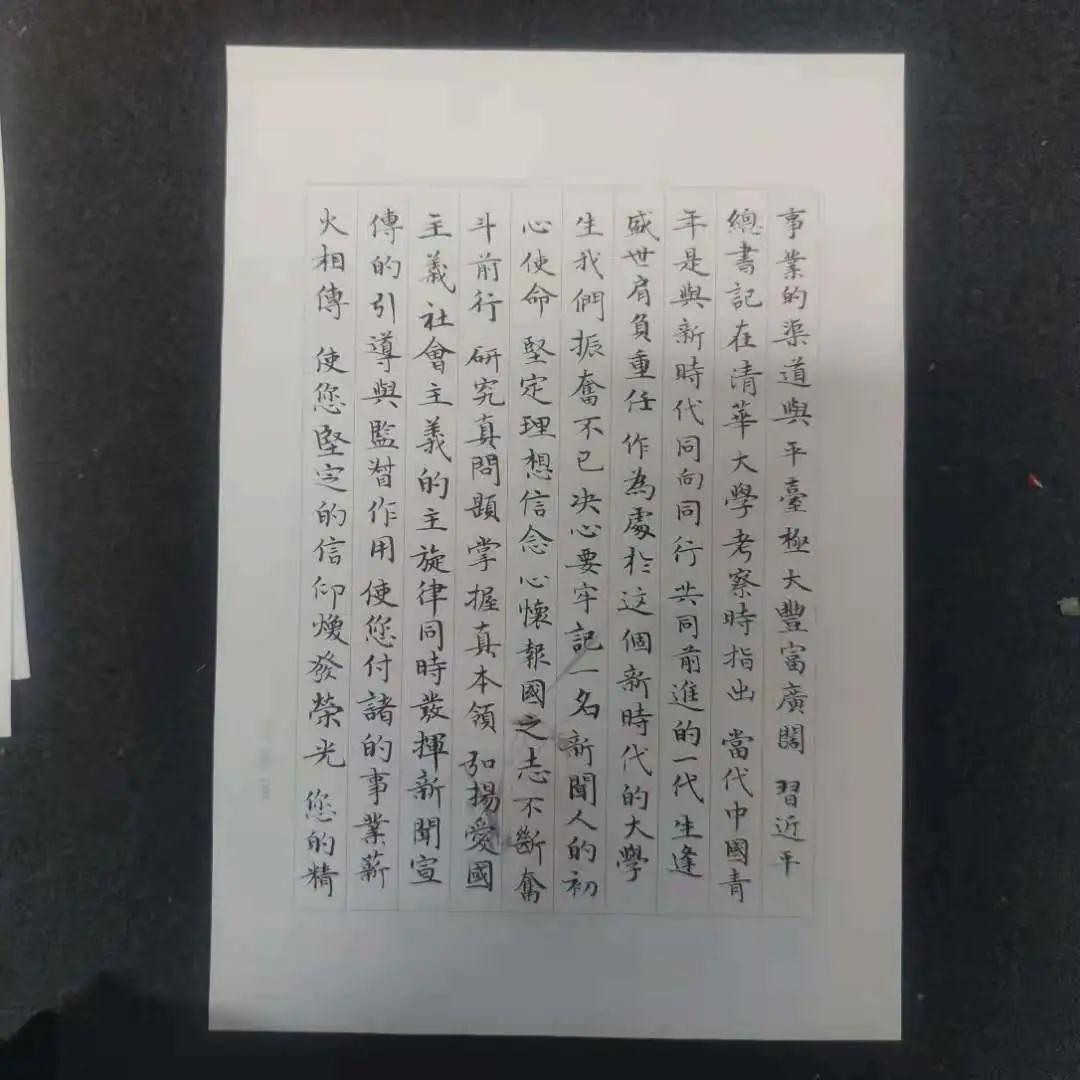 事業的渠道與平臺極大豐富廣闊 習近平
總書記在清華大學考察時指出 當代中國青
年是與新時代同向同行共同前進的一代生逢
盛世肩負重任 作為處於這個新時代的大學
生我們振奮不已 决心要牢記一名新聞人的初
心使命 堅定理想信念 心懷報國之志不斷奮
斗前行 研究真問題 掌握真本領 弘揚愛國
主義社會主義的主旋律同時發揮新聞宣
傳的引導與監督作用使您付諸的事業薪
火相傳 使您堅定的信仰煥發榮光 您的精